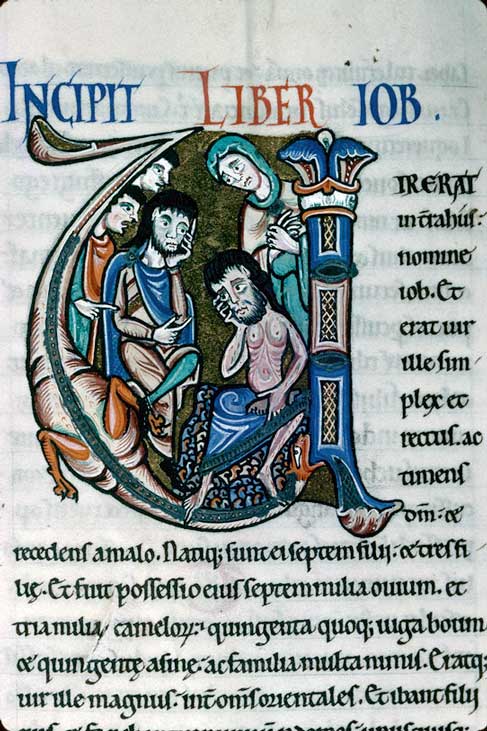 INCIPIT LIBER IOB.
UIR ERAT
in t̄ra hus.
nomine
iob. Et
erat uir
ille sim
plex et
rectus. ac
timens
dm̄. &
recedens a malo. Natiq; sunt ei septem filii. & tres fi
lię. Et fuit possessio eius septem milia ouium. et
tria milia cameloꝝ. quingenta quoq; iuga boum
& quingentę asinę. ac familia multa nimis. Eratq;
uir ille magnus. int̄ om̄s orientales. Et ibant filii